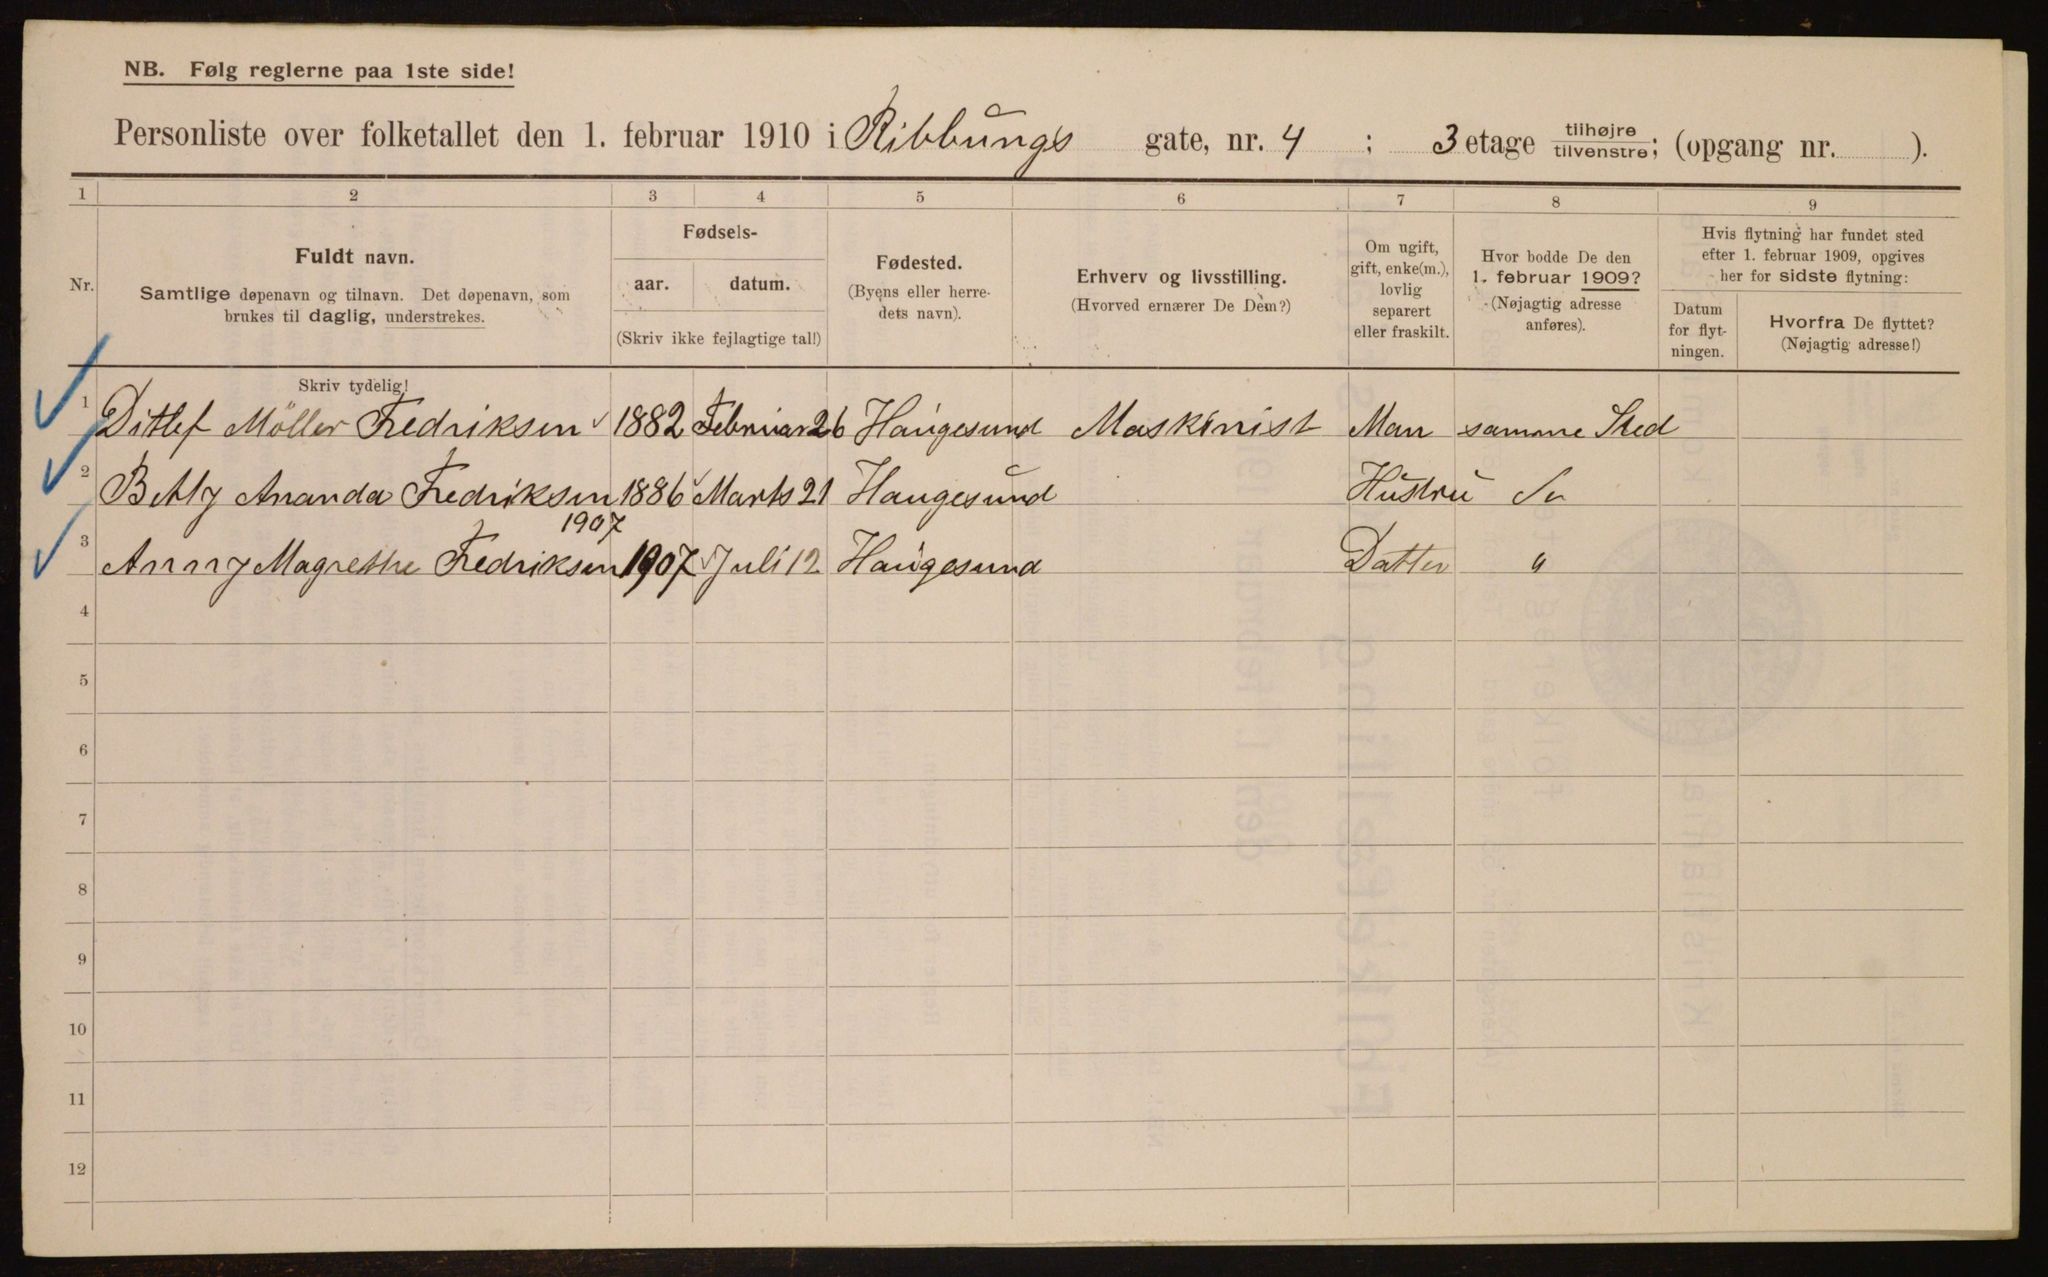 NB. Følg reglerne paa 1ste side!
Personliste over folketallet den 1. februar 1910 i Ribbungs gate, nr. 4 ; 3 etage tilhøjre/tilvenstre; (opgang nr. ).
1 2 3 4 5 6 7 8 9
Nr.
Fuldt navn.
Samtlige døpenavn og tilnavn. Det døpenavn, som
brukes til daglig, understrekes.
Fødsels-
aar. datum.
(Skriv ikke fejlagtige tal!)
Fødested.
(Byens eller herre-
dets navn).
Erhverv og livsstilling.
(Hvorved ernærer De Dem?)
Om ugift,
gift, enke(m.),
lovlig
separert
eller fraskilt.
Hvor bodde De den
1. februar 1909?
(Nøjagtig adresse
anføres).
Hvis flytning har fundet sted
efter 1. februar 1909, opgives
her for sidste flytning:
Datum
for flyt-
ningen.
Hvorfra De flyttet?
(Nøjagtig adresse!)
Skriv tydelig!
1 Ditlef Möller Fredriksen 1882 Februar 26 Haugesund Maskinist Man samme Sted
2 Betly Ananda Fredriksen 1886 Marts 21 Haugesund Hustru
1907
3 Anny Magrethe Fredriksen 1907 Juli 12 Haugesund Datter "
4
5
6
7
8
9
10
11
12